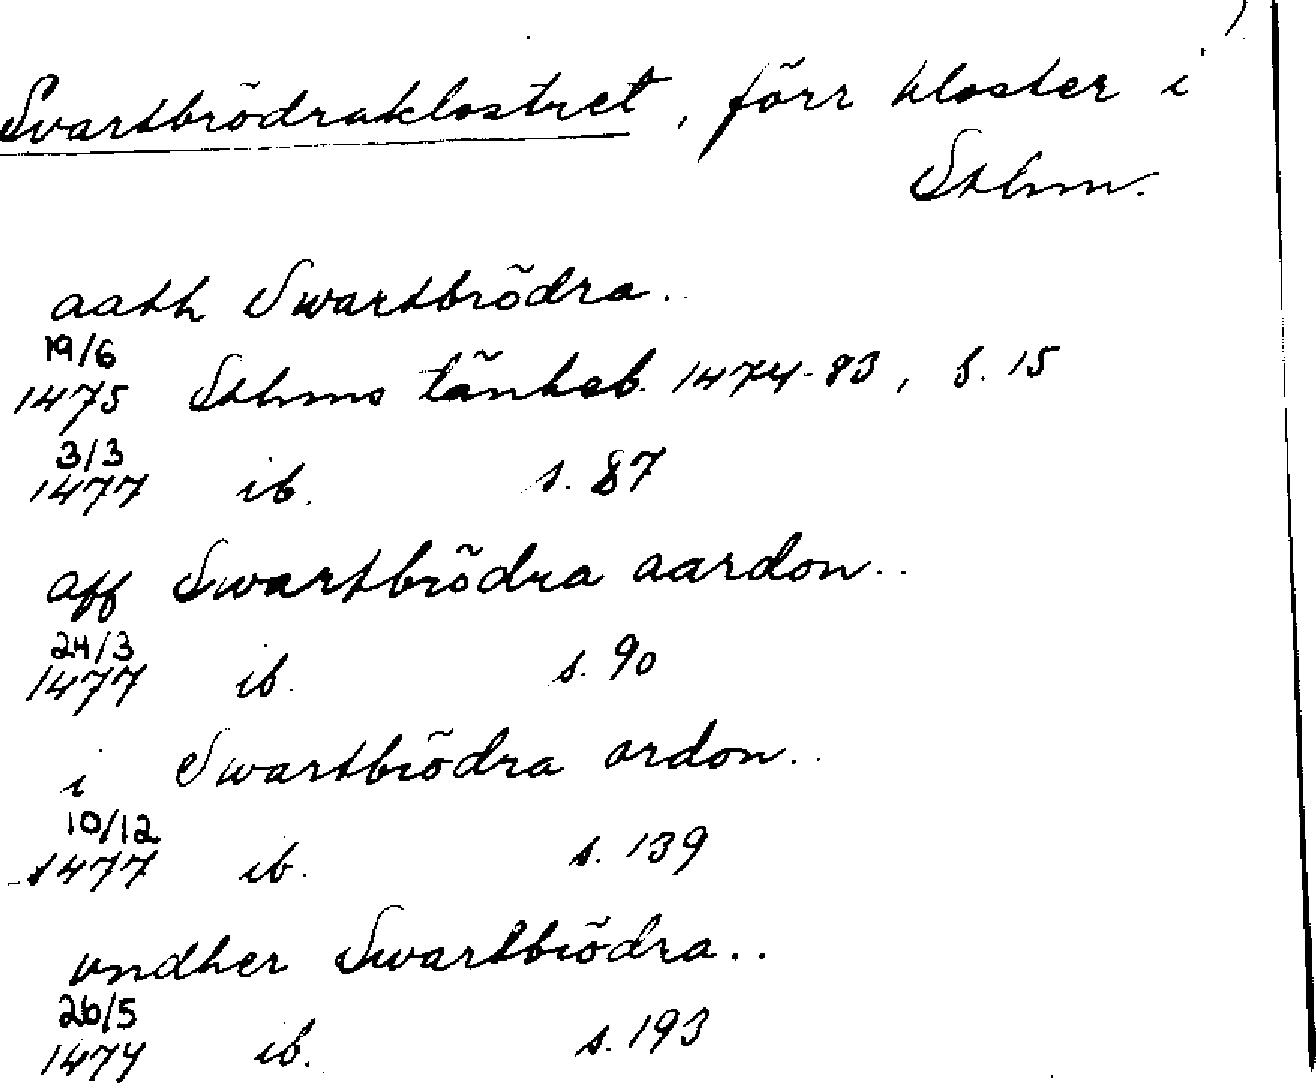 Svartbrödraklostret, förr kloster i
Sthm.
aath Swartbrödra..
19/6
1475 Sthms tänkeb. 1474-83, s. 15
3/3
1477 ib. s. 87
aff Swartbrödra aardon..
24/3
1477 ib. s. 90
i Swartbrödra ordon..
10/12
1477 ib. s. 139
vndher Swartbrödra..
26/5
1479 ib. s. 193